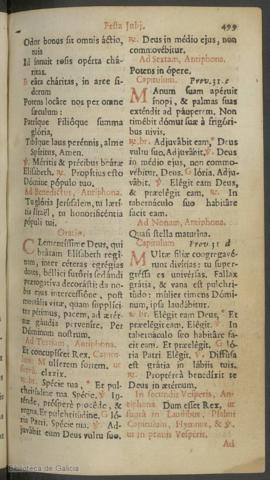 Festa Julij.
499
Odor bonus sit omnis áctio,
nis
Id innuit rosis opérta chá-
ritas.
Beáta cháritas, in arce sí-
derum
Potens locáre nos per omne
sæculum:
Patríque Filióque summa
glória,
Tibíque laus perénnis, alme
Spíritus. Amen.
℣. Méritis & précibus beátæ
Elísabeth. ℟. Propítius esto
Dómine pópulo tuo.
Ad Benedictus, Antiphona.
Tu glória Jerúsalem, tu læti-
tia Israël, tu honorificéntia
pópuli tui.
Oratio.
Clementíssime Deus, qui
beátam Elísabeth regí-
nam, inter céteras egrégias
dotes, béllici furóris sedándi
prærogatíva decorásti: da no-
bis ejus intercessióne, post
mortális vitæ, quam supplíci-
ter pétimus, pacem, ad ætér-
na gáudia perveníre. Per
Dóminum nostrum.
Ad Tertiam, Antiphona.
Et concupíscet Rex. Capitu.
Mulíerem fortem. ut
supra. clxxix.
℟.br. Spécie tua, * Et pul-
chritúdine tua. Spécie. ℣. In-
ténde, próspere procéde, &
regna. Et pulchritúdine. Gló-
ria Patri. Spécie tua. ℣. Ad-
juvábit eam Deus vultu suo.
℟. Deus in médio ejus, non
commovébitur.
Ad Sextam, Antiphona.
Potens in ópere.
Capitulum. Prov. 31. c
Manum suam apéruit
ínopi, & palmas suas
exténdit ad páuperem. Non
timébit dómui suæ à frigóri-
bus nivis.
℟.br. Adjuvábit eam, * Deus
vultu suo. Adjuvábit. ℣. Deus
in médio ejus, non commo-
vébitur. Deus. Glória. Adju-
vábit. ℣. Elégit eam Deus,
& præelégit eam. ℟. In
tabernáculo suo habitáre
facit eam.
Ad Nonam, Antiphona.
Quasi stella matutína.
Capitulum Prov. 31. d
Multæ fíliæ congregavé-
runt divítias: tu super-
gréssa es univérsas. Fallax
grátia, & vana est pulchri-
túdo: múlier timens Dómi-
num, ipsa laudábitur.
℟.br. Elégit eam Deus, * Et
præelégit eam. Elégit. ℣. In
tabernáculo suo habitáre fa-
cit eam. Et præelégit. Gló-
ria Patri Elégit. ℣. Diffúsa
est grátia in lábiis tuis.
℟. Proptérea benedíxit te
Deus in ætérnum.
In secundis Vesperis, An-
tiphona. Dum esset Rex,
ut in Laudibus, Psalmi
Capitulum, Hymnus, & ℣.
ut in primis Vesperis.
Ad
Biblioteca de Galicia